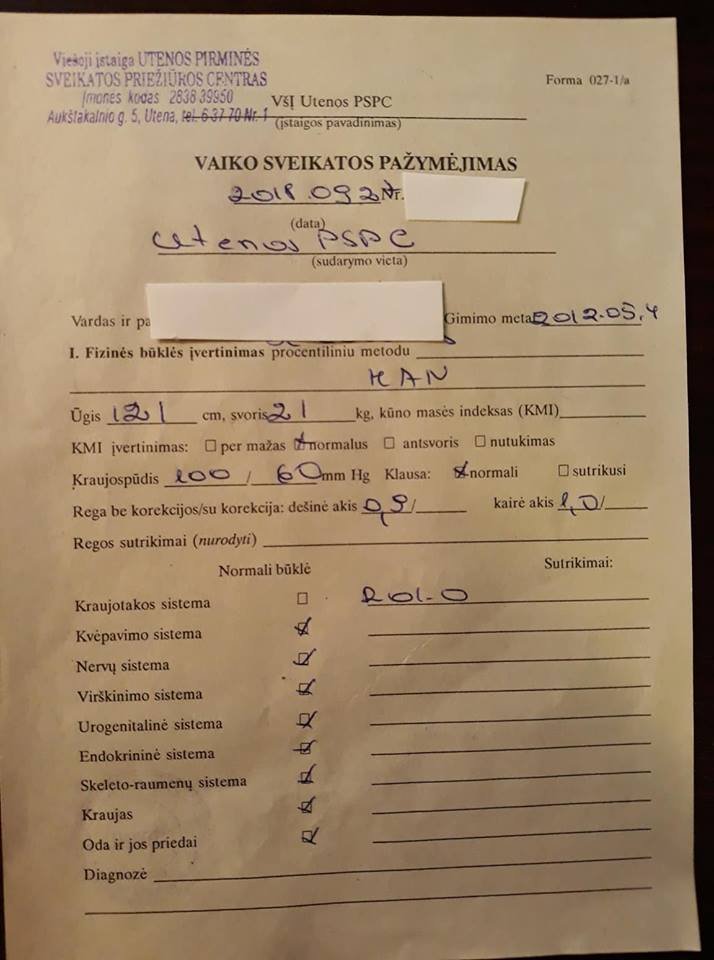 Viešoji įstaiga UTENOS PIRMINĖS
SVEIKATOS PRIEŽIŪROS CENTRAS
Įmonės kodas 2838 39950
Aukštakalnio g. 5, Utena, tel. 6-37 70 Nr. 1
Forma 027-1/a
VšĮ Utenos PSPC
(įstaigos pavadinimas)
VAIKO SVEIKATOS PAŽYMĖJIMAS
2018.09.27 Nr.
(data)
Utenos PSPC
(sudarymo vieta)
Vardas ir pa Gimimo metai 2012.05.4
I. Fizinės būklės įvertinimas procentiliniu metodu
HAN
Ūgis 121 cm, svoris 21 kg, kūno masės indeksas (KMI)
KMI įvertinimas: ☐ per mažas ☑ normalus ☐ antsvoris ☐ nutukimas
Kraujospūdis 100 / 60 mm Hg Klausa: ☑ normali ☐ sutrikusi
Rega be korekcijos/su korekcija: dešinė akis 0,9/ kairė akis 1,0/
Regos sutrikimai (nurodyti)
Normali būklė Sutrikimai:
Kraujotakos sistema ☐ Q01-0
Kvėpavimo sistema ☑
Nervų sistema ☑
Virškinimo sistema ☑
Urogenitalinė sistema ☑
Endokrininė sistema ☑
Skeleto-raumenų sistema ☑
Kraujas ☑
Oda ir jos priedai ☑
Diagnozė